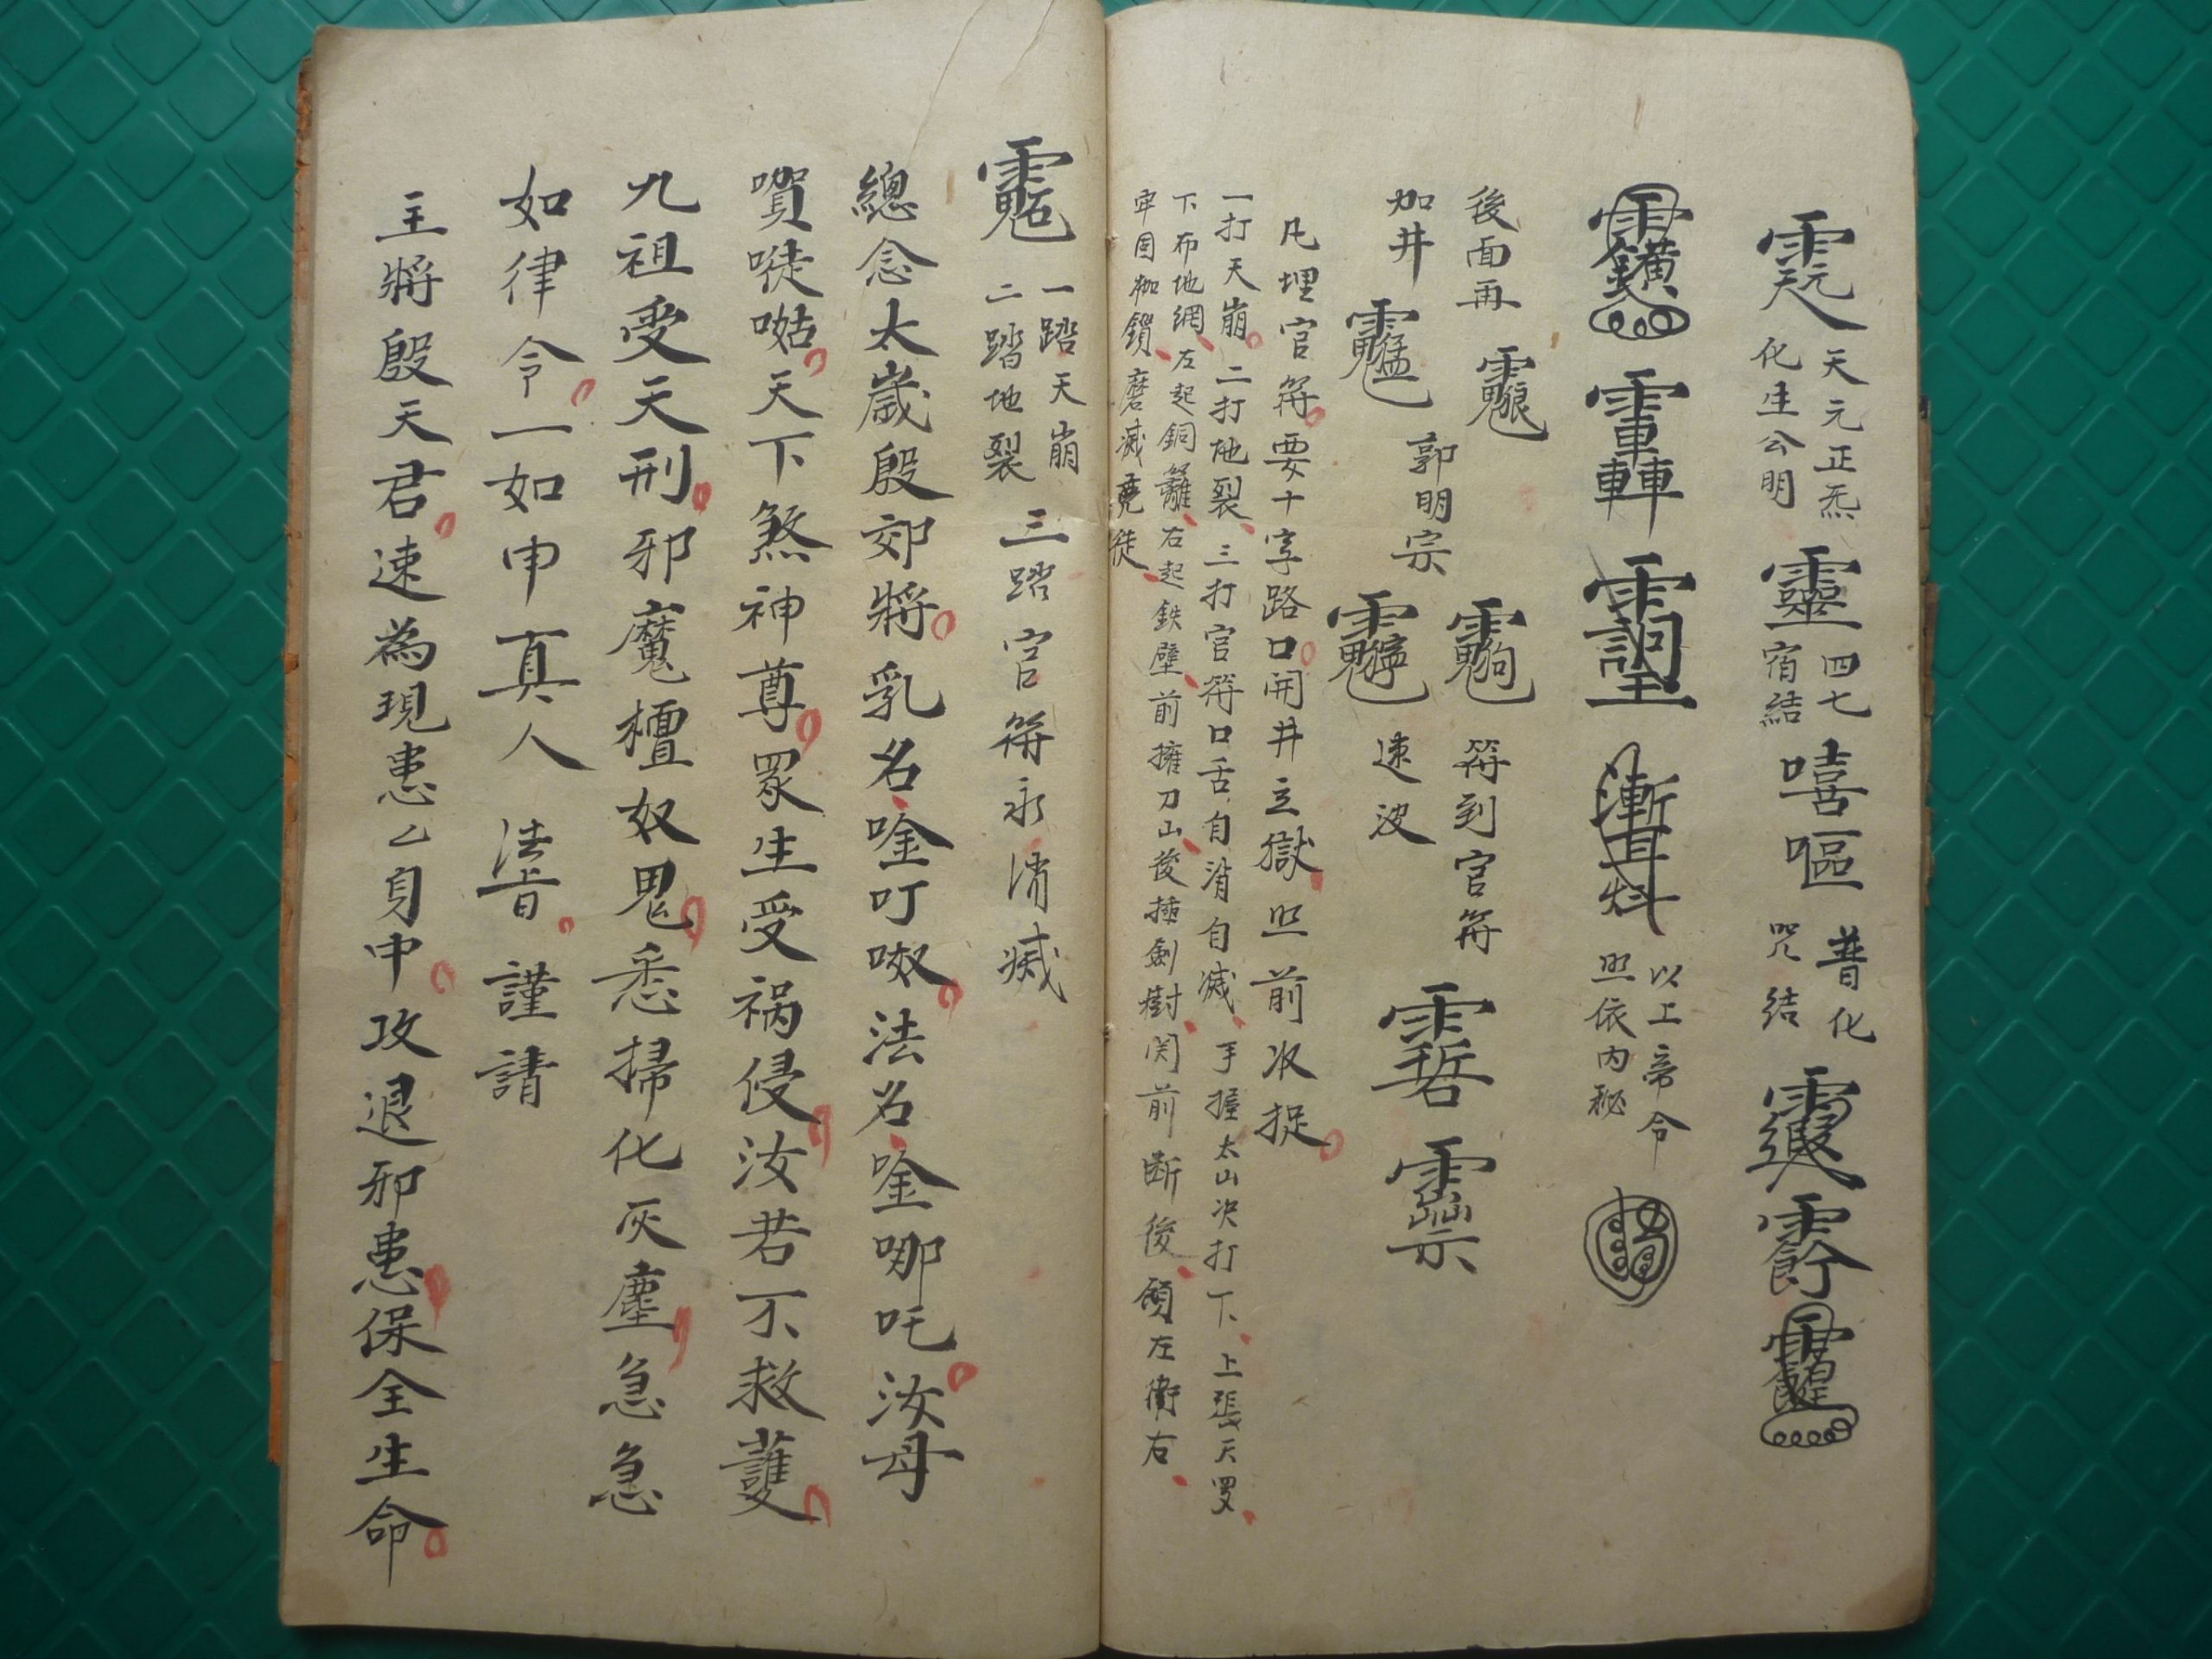 天元正炁
化生公明
靈
四七
宿結
嘻嘔
普化
咒結
以上帝令
照依内秘
後面再
加井
郭明宗
符到官符
速汷
凡埋官符要十字路口開井立獄照前收捉
一打天崩二打地裂三打官符口舌自消自滅手握太山决打下上張天罗
下布地網左起銅籬右起鉄壁前擁刀山後插劍樹関前断後領左衛右
牢固枷鎖磨滅竟徒
一踏天崩
二踏地裂
三踏官符永消滅
總念太歲殷郊將乳名唫叮㗙法名唫哪吒汝母
㗎唗㗅天下煞神尊眾生受祸侵汝若不救護
九祖受天刑邪魔檀奴鬼悉掃化灰塵急急
如律令一如申真人法旨謹請
主將殷天君速為現患乙身中攻退邪患保全生命